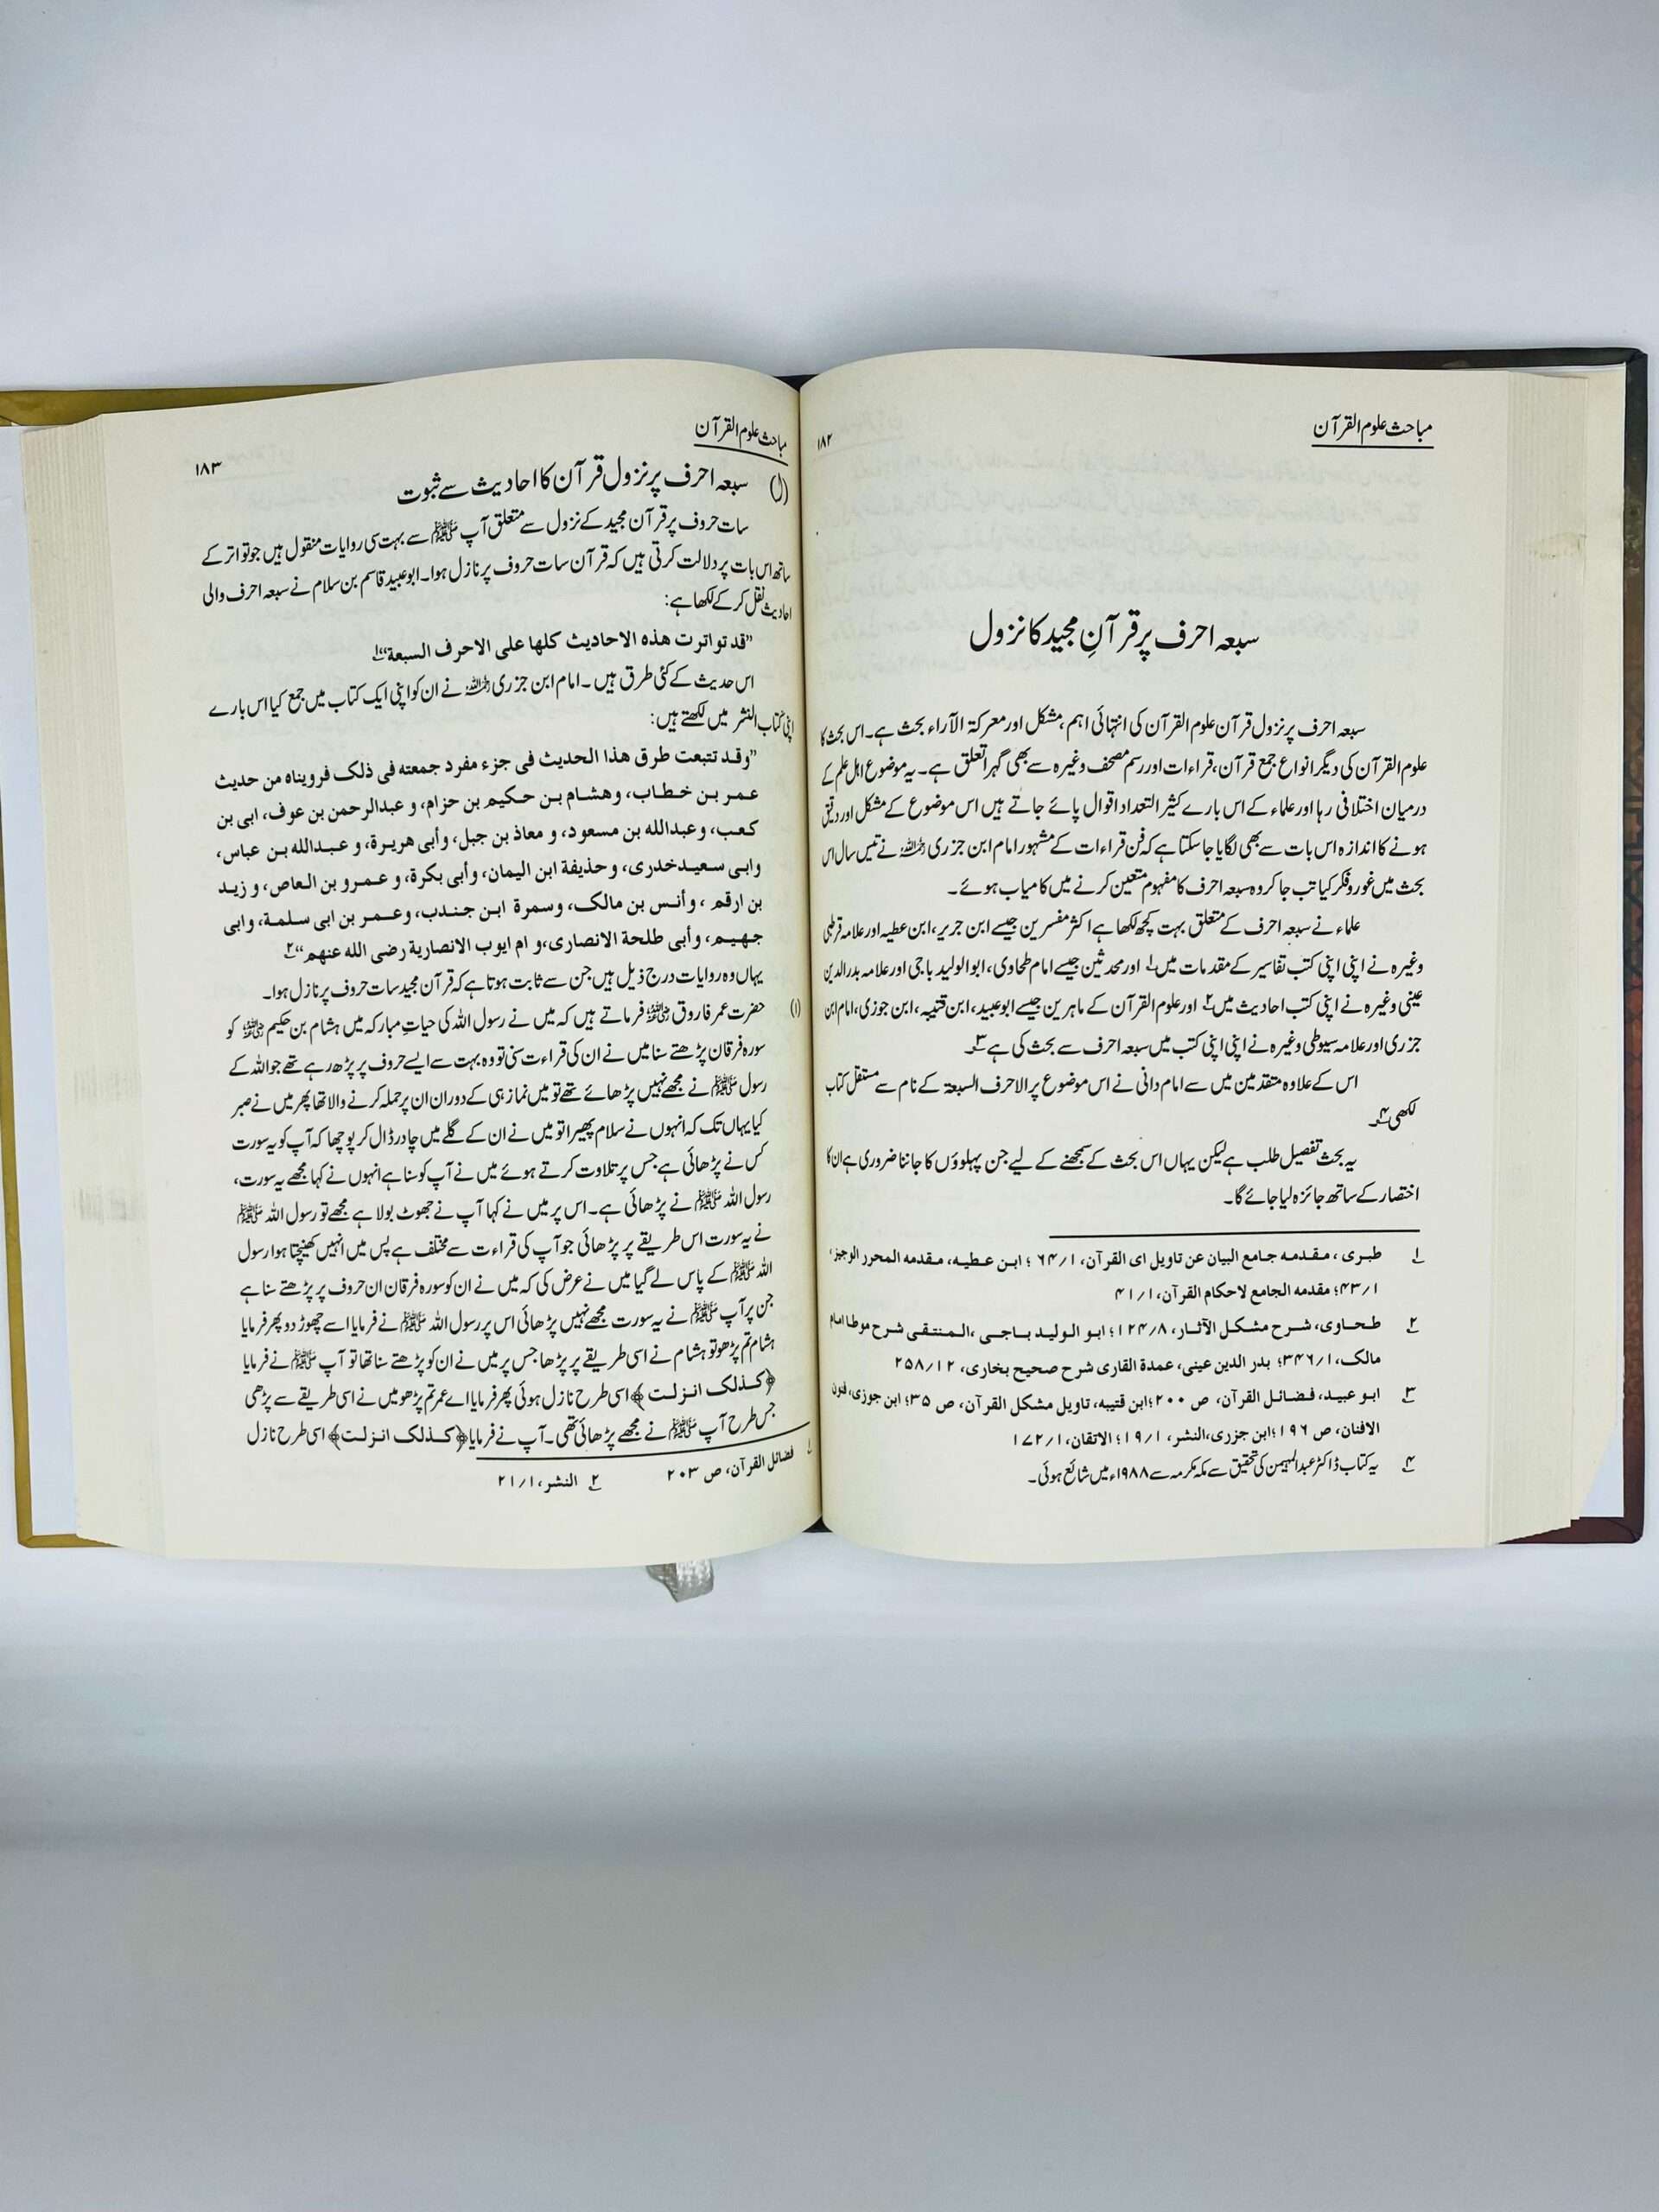 مباحث علوم القرآن
۱۸۲
سبعہ احرف پر قرآنِ مجید کا نزول
سبعہ احرف پر نزول قرآن علوم القرآن کی انتہائی اہم، مشکل اور معرکۃ الآراء بحث ہے۔ اس بحث کا
علوم القرآن کی دیگر انواع جمع قرآن، قراءات اور رسم مصحف وغیرہ سے بھی گہرا تعلق ہے۔ یہ موضوع اہل علم کے
درمیان اختلافی رہا اور علماء کے اس بارے کثیر التعداد اقوال پائے جاتے ہیں اس موضوع کے مشکل اور دقیق
ہونے کا اندازہ اس بات سے بھی لگایا جا سکتا ہے کہ فن قراءات کے مشہور امام ابن جزری رحمہ اللہ نے تیس سال اس
بحث میں غور و فکر کیا تب جا کر وہ سبعہ احرف کا مفہوم متعین کرنے میں کامیاب ہوئے۔
علماء نے سبعہ احرف کے متعلق بہت کچھ لکھا ہے اکثر مفسرین جیسے ابن جریر، ابن عطیہ اور علامہ قرطبی
وغیرہ نے اپنی اپنی کتب تفاسیر کے مقدمات میں۱ اور محدثین جیسے امام طحاوی، ابوالولید باجی اور علامہ بدرالدین
عینی وغیرہ نے اپنی کتب احادیث میں۲ اور علوم القرآن کے ماہرین جیسے ابوعبید، ابن قتیبہ، ابن جوزی، امام ابن
جزری اور علامہ سیوطی وغیرہ نے اپنی اپنی کتب میں سبعہ احرف سے بحث کی ہے۳۔
اس کے علاوہ متقدمین میں سے امام دانی نے اس موضوع پر الاحرف السبعۃ کے نام سے مستقل کتاب
لکھی۴۔
یہ بحث تفصیل طلب ہے لیکن یہاں اس بحث کے سمجھنے کے لیے جن پہلوؤں کا جاننا ضروری ہے ان کا
اختصار کے ساتھ جائزہ لیا جائے گا۔
۱ طبری، مقدمه جامع البیان عن تاویل ای القرآن، ۱/۶۴؛ ابن عطیه، مقدمه المحرر الوجیز،
۱/۴۳؛ مقدمه الجامع لاحکام القرآن، ۱/۴۱
۲ طحاوی، شرح مشکل الآثار، ۸/۱۲۴؛ ابو الولید باجی، المنتقی شرح موطا امام
مالک، ۱/۳۴۶؛ بدر الدین عینی، عمدة القاری شرح صحیح بخاری، ۱۲/۲۵۸
۳ ابو عبید، فضائل القرآن، ص ۲۰۰؛ ابن قتیبه، تاویل مشکل القرآن، ص ۳۵؛ ابن جوزی، فنون
الافنان، ص ۱۹۶؛ ابن جزری، النشر، ۱/۱۹؛ الاتقان، ۱/۱۷۲
۴ یہ کتاب ڈاکٹر عبدالمہیمن کی تحقیق سے مکہ مکرمہ سے ۱۹۸۸ء میں شائع ہوئی۔
مباحث علوم القرآن
۱۸۳
(ل) سبعہ احرف پر نزول قرآن کا احادیث سے ثبوت
سات حروف پر قرآن مجید کے نزول سے متعلق آپ ﷺ سے بہت سی روایات منقول ہیں جو تواتر کے
ساتھ اس بات پر دلالت کرتی ہیں کہ قرآن سات حروف پر نازل ہوا۔ ابوعبید قاسم بن سلام نے سبعہ احرف والی
احادیث نقل کر کے لکھا ہے:
”قد تواترت هذه الاحادیث کلها علی الاحرف السبعة“۱
اس حدیث کے کئی طرق ہیں۔ امام ابن جزری رحمہ اللہ نے ان کو اپنی ایک کتاب میں جمع کیا اس بارے
اپنی کتاب النشر میں لکھتے ہیں:
”وقد تتبعت طرق هذا الحدیث فی جزء مفرد جمعته فی ذلک فرویناه من حدیث
عمر بن خطاب، وهشام بن حکیم بن حزام، و عبدالرحمن بن عوف، ابی بن
کعب، وعبدالله بن مسعود، و معاذ بن جبل، وأبی هریرة، و عبدالله بن عباس،
وابی سعید خدری، و حذیفة ابن الیمان، وأبی بکرة، و عمرو بن العاص، و زید
بن ارقم، وأنس بن مالک، وسمرة ابن جندب، وعمر بن ابی سلمة، وابی
جهیم، وأبی طلحة الانصاری، و ام ایوب الانصاریة رضی الله عنهم“۲
یہاں وہ روایات درج ذیل ہیں جن سے ثابت ہوتا ہے کہ قرآن مجید سات حروف پر نازل ہوا۔
(۱) حضرت عمر فاروق رضی اللہ عنہ فرماتے ہیں کہ میں نے رسول اللہ کی حیاتِ مبارکہ میں ہشام بن حکیم رضی اللہ عنہ کو
سورہ فرقان پڑھتے سنا میں نے ان کی قراءت سنی تو وہ بہت سے ایسے حروف پر پڑھ رہے تھے جو اللہ کے
رسول ﷺ نے مجھے نہیں پڑھائے تھے تو میں نماز ہی کے دوران ان پر حملہ کرنے والا تھا پھر میں نے صبر
کیا یہاں تک کہ انہوں نے سلام پھیرا تو میں نے ان کے گلے میں چادر ڈال کر پوچھا کہ آپ کو یہ سورت
کس نے پڑھائی ہے جس پر تلاوت کرتے ہوئے میں نے آپ کو سنا ہے انہوں نے کہا مجھے یہ سورت،
رسول اللہ ﷺ نے پڑھائی ہے۔ اس پر میں نے کہا آپ نے جھوٹ بولا ہے مجھے تو رسول اللہ ﷺ
نے یہ سورت اس طریقے پر پڑھائی جو آپ کی قراءت سے مختلف ہے پس میں انہیں کھینچتا ہوا رسول
اللہ ﷺ کے پاس لے گیا میں نے عرض کی کہ میں نے ان کو سورہ فرقان ان حروف پر پڑھتے سنا ہے
جن پر آپ ﷺ نے یہ سورت مجھے نہیں پڑھائی اس پر رسول اللہ ﷺ نے فرمایا اسے چھوڑ دو پھر فرمایا
ہشام تم پڑھو تو ہشام نے اسی طریقے پر پڑھا جس پر میں نے ان کو پڑھتے سنا تھا تو آپ ﷺ نے فرمایا
﴿کذلک انزلت﴾ اسی طرح نازل ہوئی پھر فرمایا اے عمر تم پڑھو میں نے اسی طریقے سے پڑھی
جس طرح آپ ﷺ نے مجھے پڑھائی تھی۔ آپ نے فرمایا ﴿کذلک انزلت﴾ اسی طرح نازل
۱ فضائل القرآن، ص ۲۰۳ ۲ النشر، ۱/۲۱